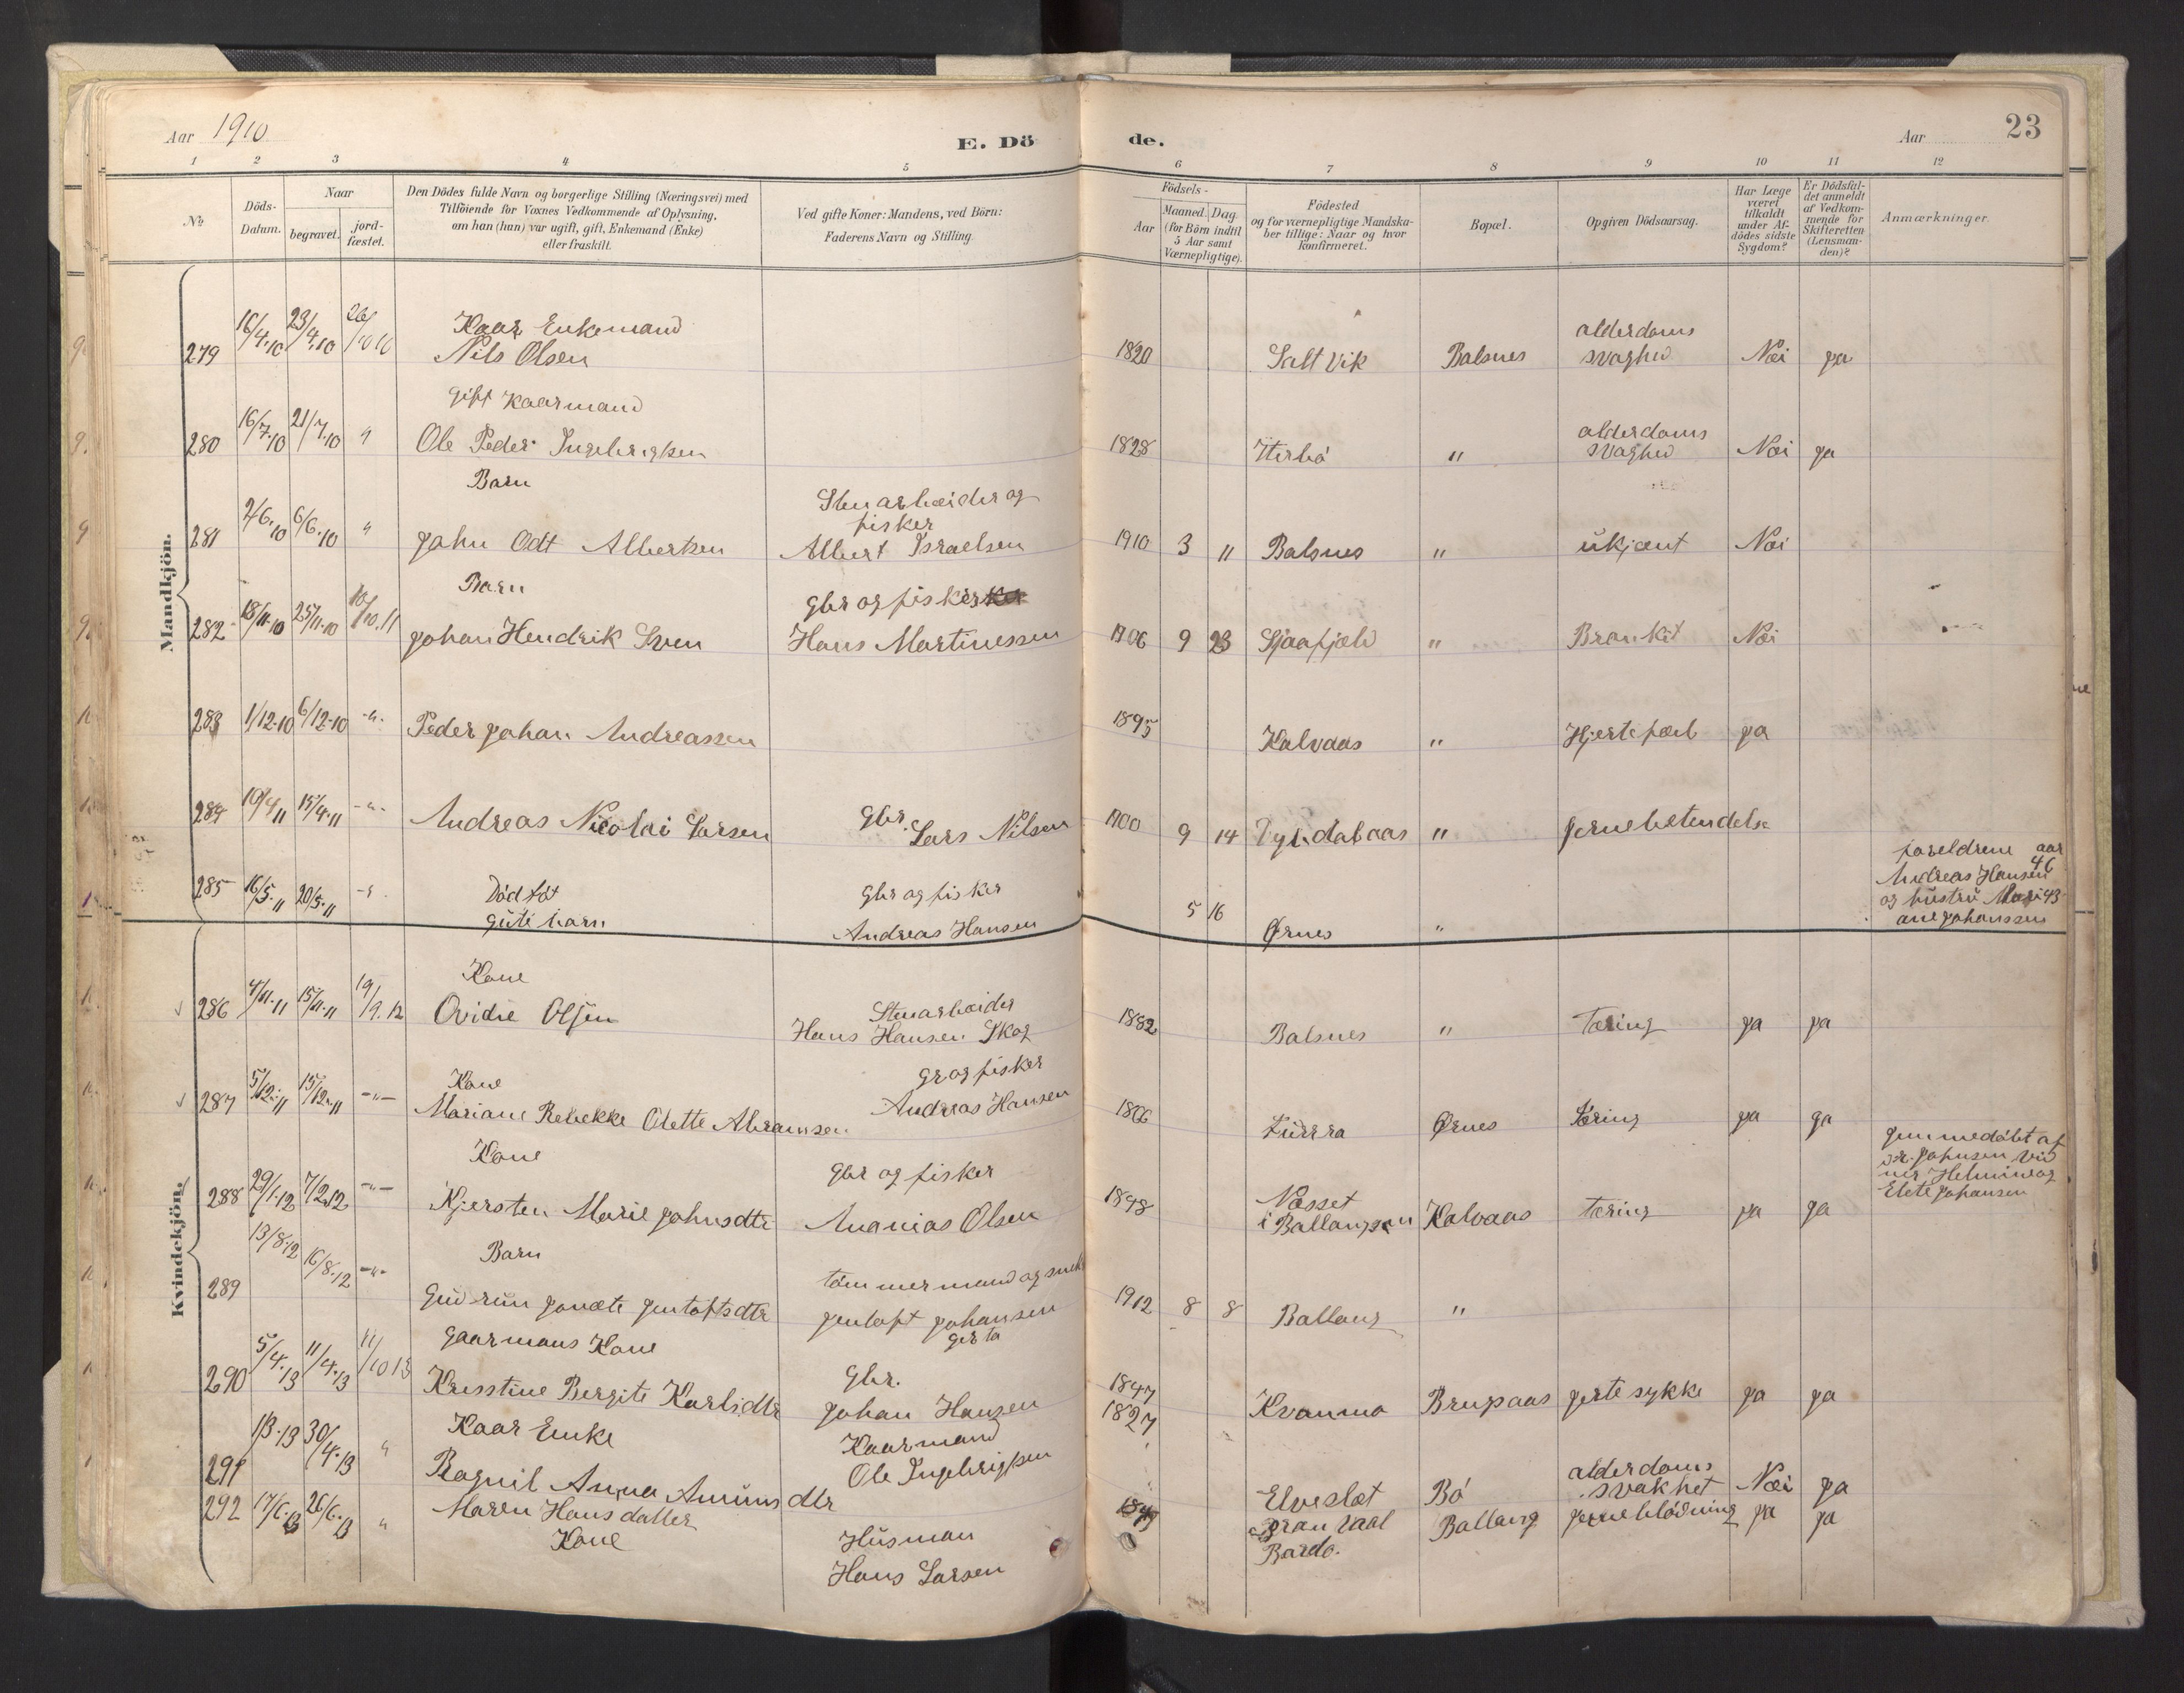 Aar 1910
E. Dö de.
Aar
23
1 2 3 4 5 6 7 8 9 10 11 12
No
Döds-Datum.
Naar
begravet. jord-fæstet.
Den Dödes fulde Navn og borgerlige Stilling (Næringsvei) med
Tilföiende for Voxnes Vedkommende af Oplysning,
om han (hun) var ugift, gift, Enkemand (Enke)
eller fraskilt.
Ved gifte Koner: Mandens, ved Börn:
Faderens Navn og Stilling.
Födsels-
Aar Maaned. Dag.
(for Börn indtil
5 Aar samt
Værnepligtige).
Födested
og for værnepligtige Mandska-
ber tillige: Naar og hvor
konfirmeret.
Bopæl.
Opgiven Dödsaarsag.
Har Læge
været
tilkaldt
under Af-
dödes sidste
Sygdom?
Er Dödsfal-
det anmeldt
af Vedkom-
mende for
Skifteretten
(Lensman-
den)?
Anmærkninger.
Mandkjön.
Kaar Enkemand
279 16/4.10 23/4.10 Nils Olsen 1820 Saltvik Balsnes alderdoms svaghed Nei ja
Gift Kaarmand
280 16/7.10 21/7.10 " Ole Peder Ingebrigtsen 1828 Itterbö " alderdoms svaghed Nei ja
Barn
Stenarbeider og
fisker
281 2/6.10 6/6.10 " John Odt Albertsen Albert Israelsen 1910 3 11 Balsnes " ukjent Nei
Barn
Gbr og fisker
282 18/11.10 25/11.10 10/10.11 Johan Hendrik Sven Hans Martinessen 1906 9 23 Sjaafjeld " Bronkit Nei
283 1/12.10 6/12.10 -"- Peder Johan Andreassen 1895 Kalvaas " Hjertefeil ja
Gbr.
284 10/4 11 15/4.11 -"- Andreas Nicolai Larsen Lars Nilsen 1900 9 14 " Jernebetendelse
285 16/5.11 20/5.11 -"- Dödföt
Gutebarn
Gbr og fisker
Andreas Hansen
5 16 Ørnes "
foreldrene aar
Andreas Hansen 46
og hustru Mari 43
ane Johanssen
Kvindekjön.
Kone
286 4/11.11 15/11.11 19/9.12 Ovidie Olsen
Stenarbeider
Hans Hansen Skog
1882 Balsnes " Tæring ja ja
Kone
Gr og fisker
287 5/12.11 15/12.11 -"- Mariane Rebekke Olette Abramsen Andreas Hansen 1866 Ørnes tæring ja ja
Kone
Gbr og fisker
288 29/1.12 7/2.12 -"- Kjersten Marie Johnsdtr Ananias Olsen 1848 Nesset
i Ballangen Kalvaas tæring ja ja
Elete Johansen
Barn
289 13/8.12 16/8.12 -"- Gudrun
tömmermand og
Johansen
1912 8 8 Ballang "
Gaarmans Kone
290 5/4.13 11/4.13 11/10 13 Kristine Bergite Karlsdtr
Gbr.
Johan Hansen
1847 Kvanmo gertesykke ja ja
1827
Kaar Enke
Kaarmand
291 1/3.13 30/4.13 " Ragnil Anna dtr Ole Ingebrigtsen Elveslet Bö alderdoms svakhet Nei ja
292 17/6.13 26/6.13 " Maren Hansdatter
Kone
Husman
Hans Larsen
Bardo. Ballang ja ja